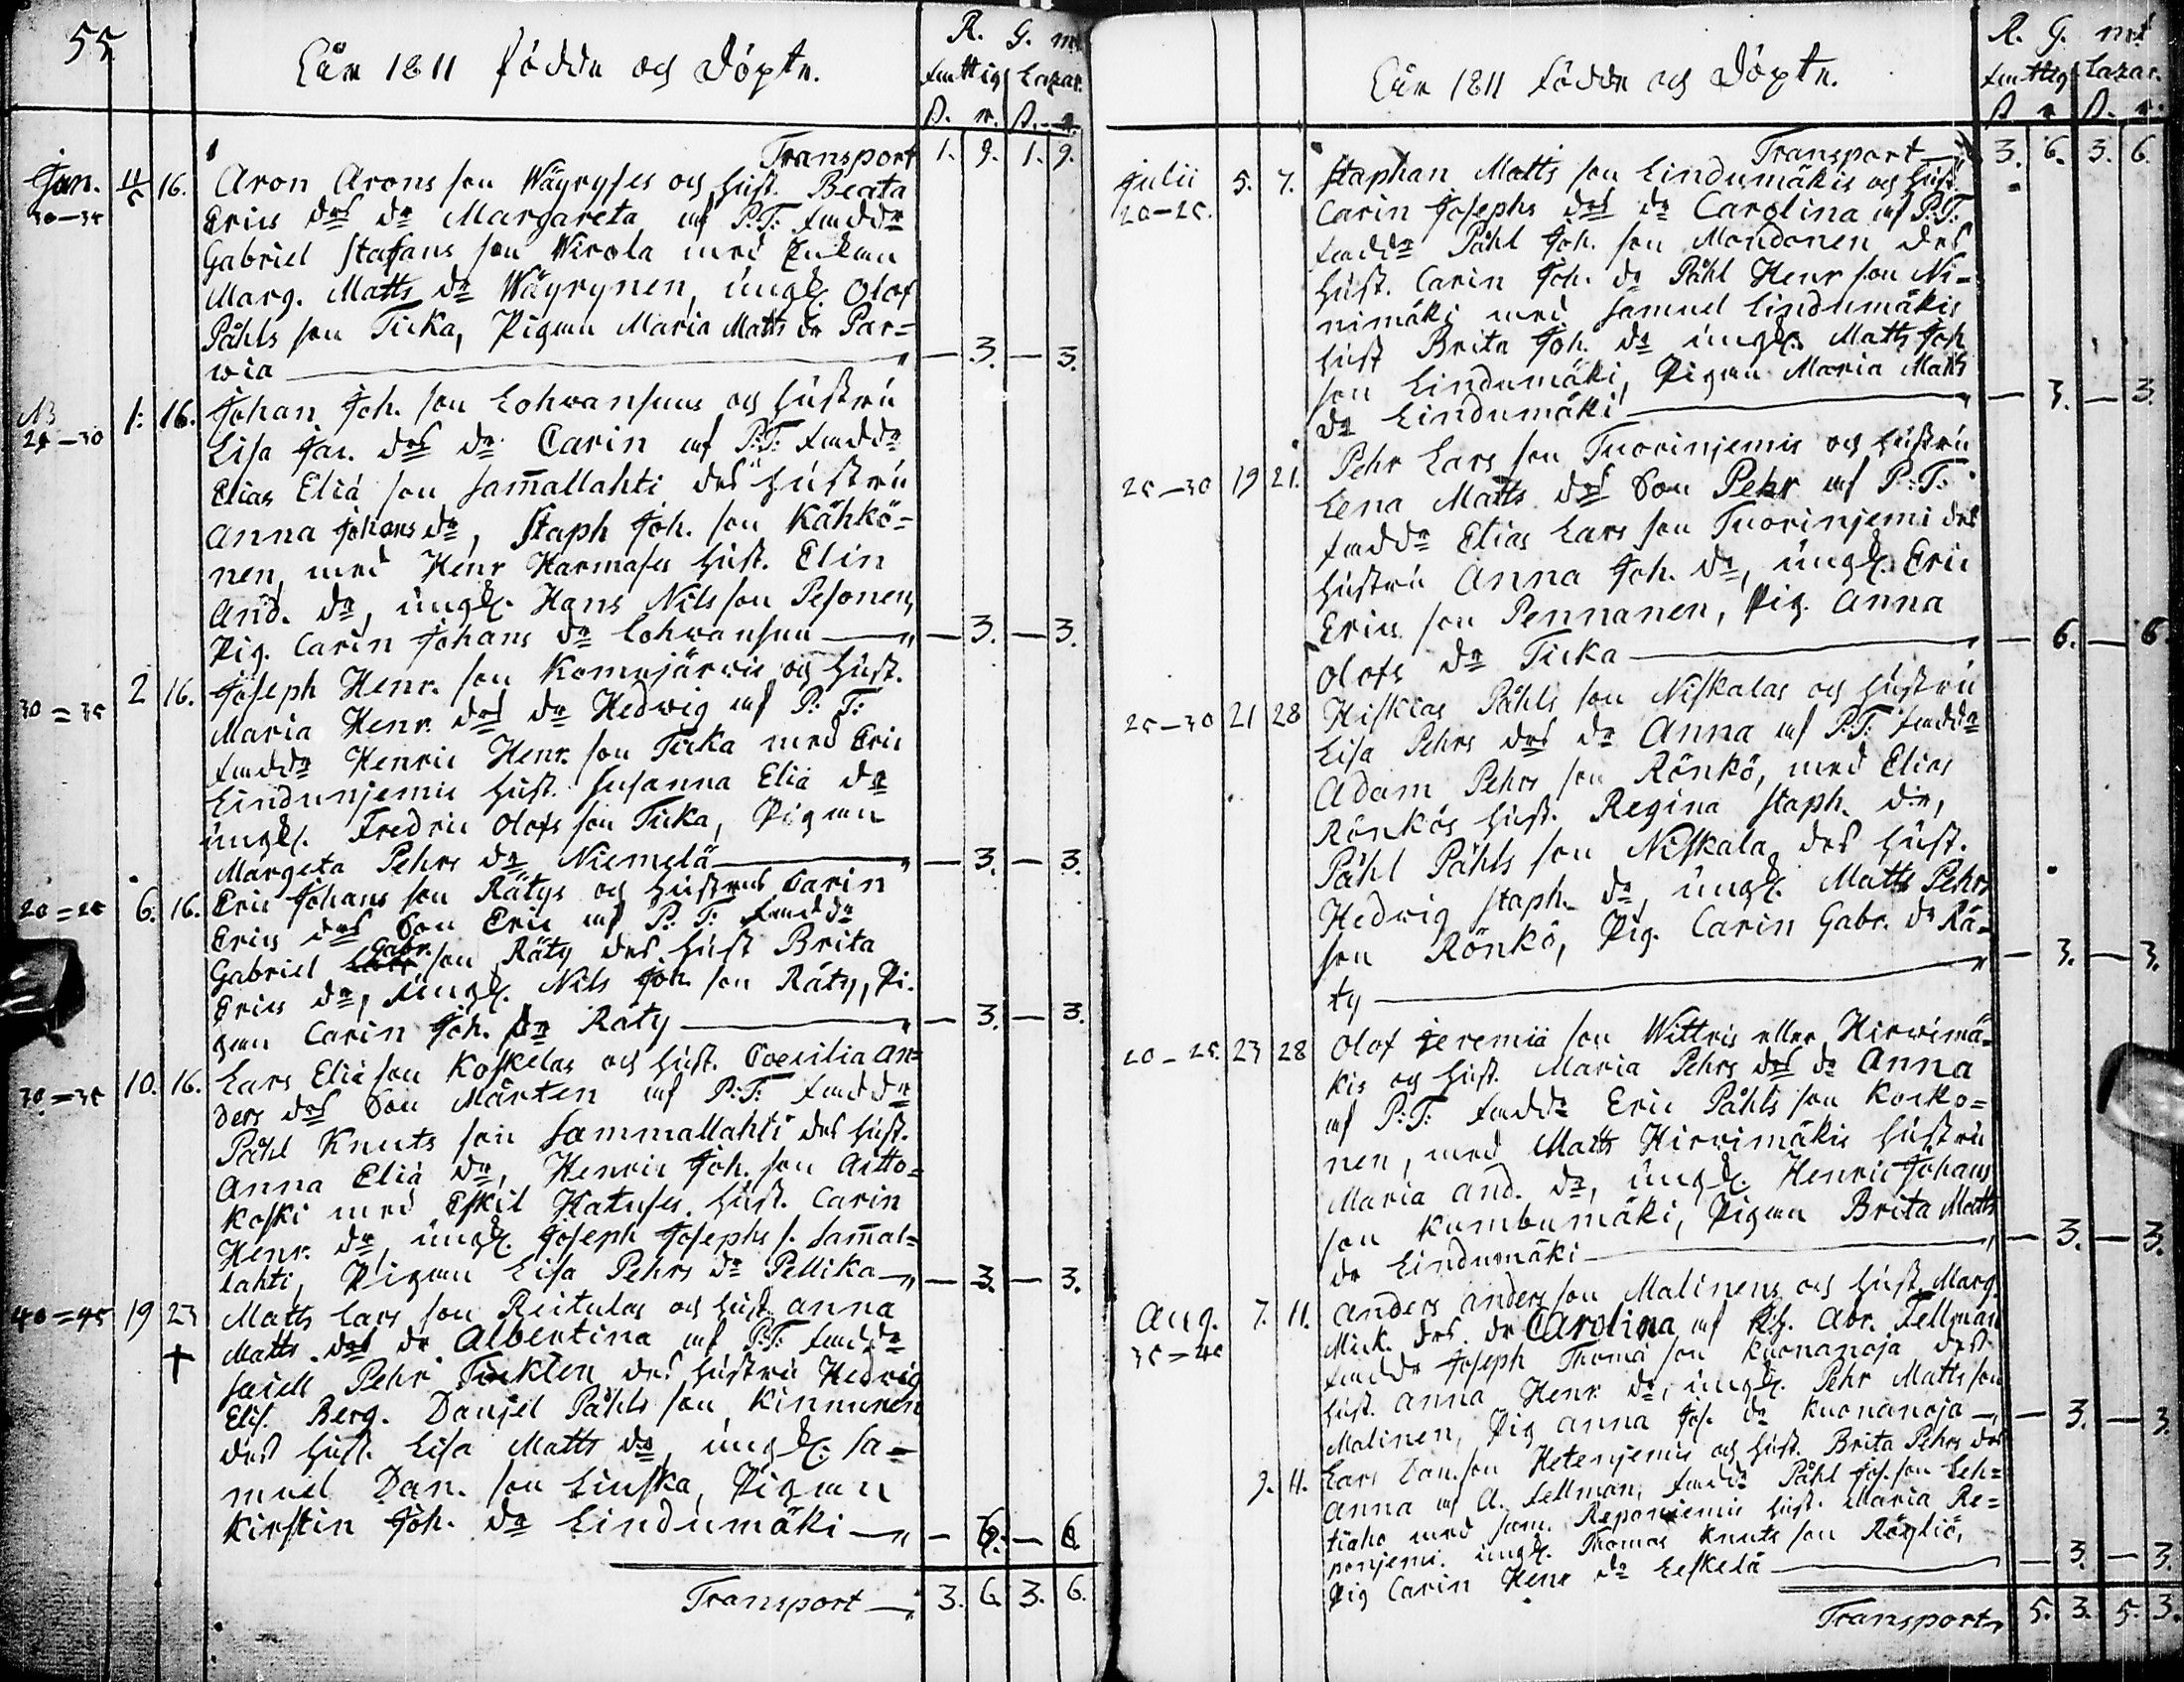 55
Åår 1811 födde och döpte.
R. G. mt
fattig Lazar.
ß. r. ß. r.
Transport 1. 9. 1. 9.
Jan. 11/6 16. Aron Arons son Wäyryses och Hust. Beata
30-35 Erics des dr Margareta af P:T: Faddr
Gabriel Stafans son Wirola med Enkan
Marg. Matts dr Wäyrynen, ungk. Olof
Påhls son Ticka, Pigan Maria Matts dr Par=
wia — 3. — 3.
1: 16. Johan Joh. son Lohwansuus och Hustru
25-30 Lisa Jac. des dr Carin af P:T: Faddr
Elias Eliä son Sam̅allahti des Hustru
Anna Johans dr, Staph Joh. son Kähkö=
nen, med Henr Harmases Hust. Elin
And. dr, ungk. Hans Nils son Pesonen,
Pig. Carin Johans dr Lohwansuu — 3. — 3.
30=35 2 16. Joseph Henr. son Komujärwis och Hust.
Maria Henr. des dr Hedwig af P: T:
Faddr Henric Henr. son Ticka med Eric
Lindunjemis Hust. Susanna Eliä dr
ungk. Fredric Olofs son Ticka, Pigan
Margeta Pehrs dr Niemelä — 3. — 3.
20=25 6. 16. Eric Johans son Rätys och Hustrus Carin
Erics des Son Eric af P. T: Faddr
Gabriel Gabr. son Räty des Hust Brita
Erics dr, ungk. Nils Joh. son Räty, Pi.
gan Carin Joh. dr Räty — 3. — 3.
30=35 10. 16. Lars Eliä son Koskelas och Hust. Coecilia An=
ders des Son Mårten af P:T: Faddr
Påhl Knuts son Sammallahti des Hust.
Anna Eliä dr, Henric Joh. son Aitto=
koski med Eskil Hatuses Hust. Carin
Henr. dr, ungk. Joseph Josephs s. Sam̅al=
lahti, Pigan Lisa Pehrs dr Pellika — 3. — 3.
40=45 19 23 Matts Lars son Riitulas och Hust Anna
† Matts des dr Albertina af P:T: Faddr
Pehr Tucklen des Hustru Hedwig
Elis. Berg. Danjel Påhls son Kinnunen
des Hust. Lisa Matts dr, ungk. Sa=
muel Dan. son Liuska, Pigan
Kirstin Joh. dr Lindumäki — 6. — 6.
Transport — 3. 6. 3. 6.
Åår 1811 födde och döpte.
R. G. mt
fattig Lazar.
ß r ß. r.
Transport — 3. 6. 3. 6.
Julii 5. 7. Staphan Matts son Lindumäkis och Hust
20-25. Carin Josephs des dr Carolina af P:T:
Faddr Påhl Joh. son Mondonen des
Hust. Carin Joh. dr Påhl Henr son Ni=
nimäki med Samuel Lindumäkis
Hust Brita Joh. dr ungk. Matts Joh
son Lindumäki, Pigan Maria Matts
dr Lindumäki — 3. — 3.
25-30 19 21. Pehr Lars son Tuorinjemis och Hustru
Lena Matts des Son Pehr af P:T:
Faddr Elias Lars son Tuorinjemi des
Hustru Anna Joh. dr, ungk. Eric
Erics son Pennanen, Pig. Anna
Olofs dr Ticka — 6. — 6.
25-30 21 28 Hiskias Påhls son Niskalas och Hustru
Lisa Pehrs des dr Anna af P:T: Faddr
Adam Pehrs son Rönkö, med Elias
Rönkös Hust. Regina Staph. dr,
Påhl Påhls son Niskala des Hust.
Hedwig Staph. dr, ungk. Matts Pehrs
son Rönkö, Pig. Carin Gabr. dr Rä=
ty — 3. — 3.
20-25 23 28 Olof Jeremiä son Wittris eller Hirwimä=
kis och Hust. Maria Pehrs des dr Anna
af P:T: Faddr Eric Påhls son Korko=
nen, med Matts Hirwimäkis Hustru
Maria And. dr, ungk. Henric Johans
son Kumbumäki, Pigan Brita Matts
dr Lindumäki — 3. — 3.
Aug. 7. 11. Anders Anders son Malinens och Hust. Marg.
35=40 Mick. des dr Carolina af Abr. Fellman
Faddr Joseph Thomä son Kuonanoja des
Hust. Anna Henr dr, ungk. Pehr Matts son
Malinen, Pig Anna Jos. dr Kuonanoja — 3. — 3.
9. 11. Lars Dan. son Hetenjemis och Hust. Brita Pehrs des
Anna af A. Fellman, Faddr Påhl Jos. son Leh=
tiaho med Sam. Reponjemis Hust. Maria Re=
ponjemi. ungk. Thomas Knuts son Röyliö,
Pig Carin Henr dr Leskelä — 3. — 3.
Transport 5. 3. 5. 3.